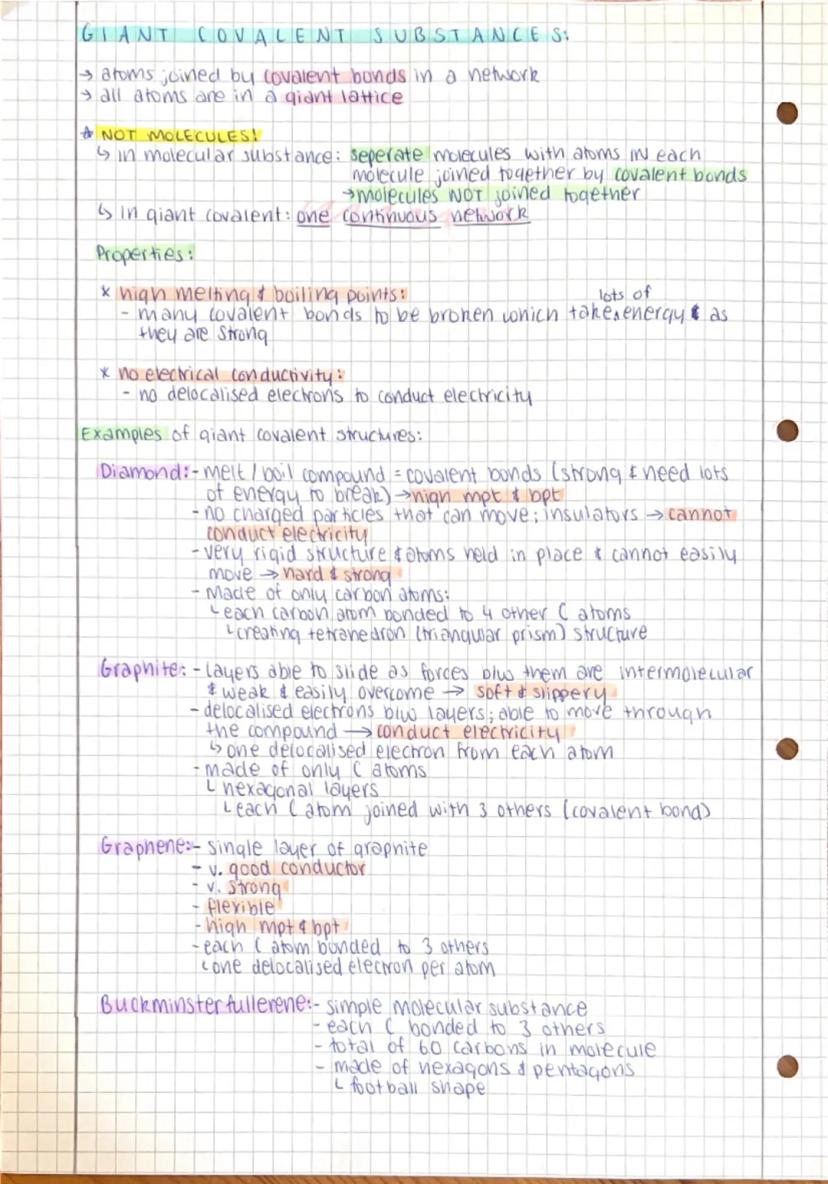 GIANT COVALENT SUBSTANCES:
→ atoms joined by covalent bonds in a network
→ all atoms are in a giant lattice
☆ NOT MOLECULES!
↳ in molecular substance: seperate molecules with atoms in each
molecule joined together by covalent bonds
→ molecules NOT joined together
↳ in giant covalent: one continuous network
Properties:
* high melting & boiling points:
lots of
- many covalent bonds to be broken which takes energy & as
they are strong
* no electrical conductivity:
- no delocalised electrons to conduct electricity
Examples of giant covalent structures:
Diamond:- melt/boil compound = covalent bonds (strong & need lots
of energy to break) → high mpt & bpt
- no charged particles that can move; insulators → cannot
conduct electricity
- very rigid structure & atoms held in place & cannot easily
move → hard & strong
- Made of only carbon atoms:
↳ each carbon atom bonded to 4 other C atoms
↳ creating tetrahedron (triangular prism) structure
Graphite:- layers able to slide as forces b/w them are intermolecular
& weak & easily overcome → soft & slippery
- delocalised electrons b/w layers; able to move through
the compound → conduct electricity
↳ one delocalised electron from each atom
- made of only C atoms
↳ hexagonal layers
↳ each C atom joined with 3 others (covalent bond)
Graphene:- single layer of graphite
- v. good conductor
- v. strong
- flexible
- high mpt & bpt
- each C atom bonded to 3 others
↳ one delocalised electron per atom
Buckminsterfullerene:- simple molecular substance
- each C bonded to 3 others
- total of 60 carbons in molecule
- made of hexagons & pentagons
↳ football shape